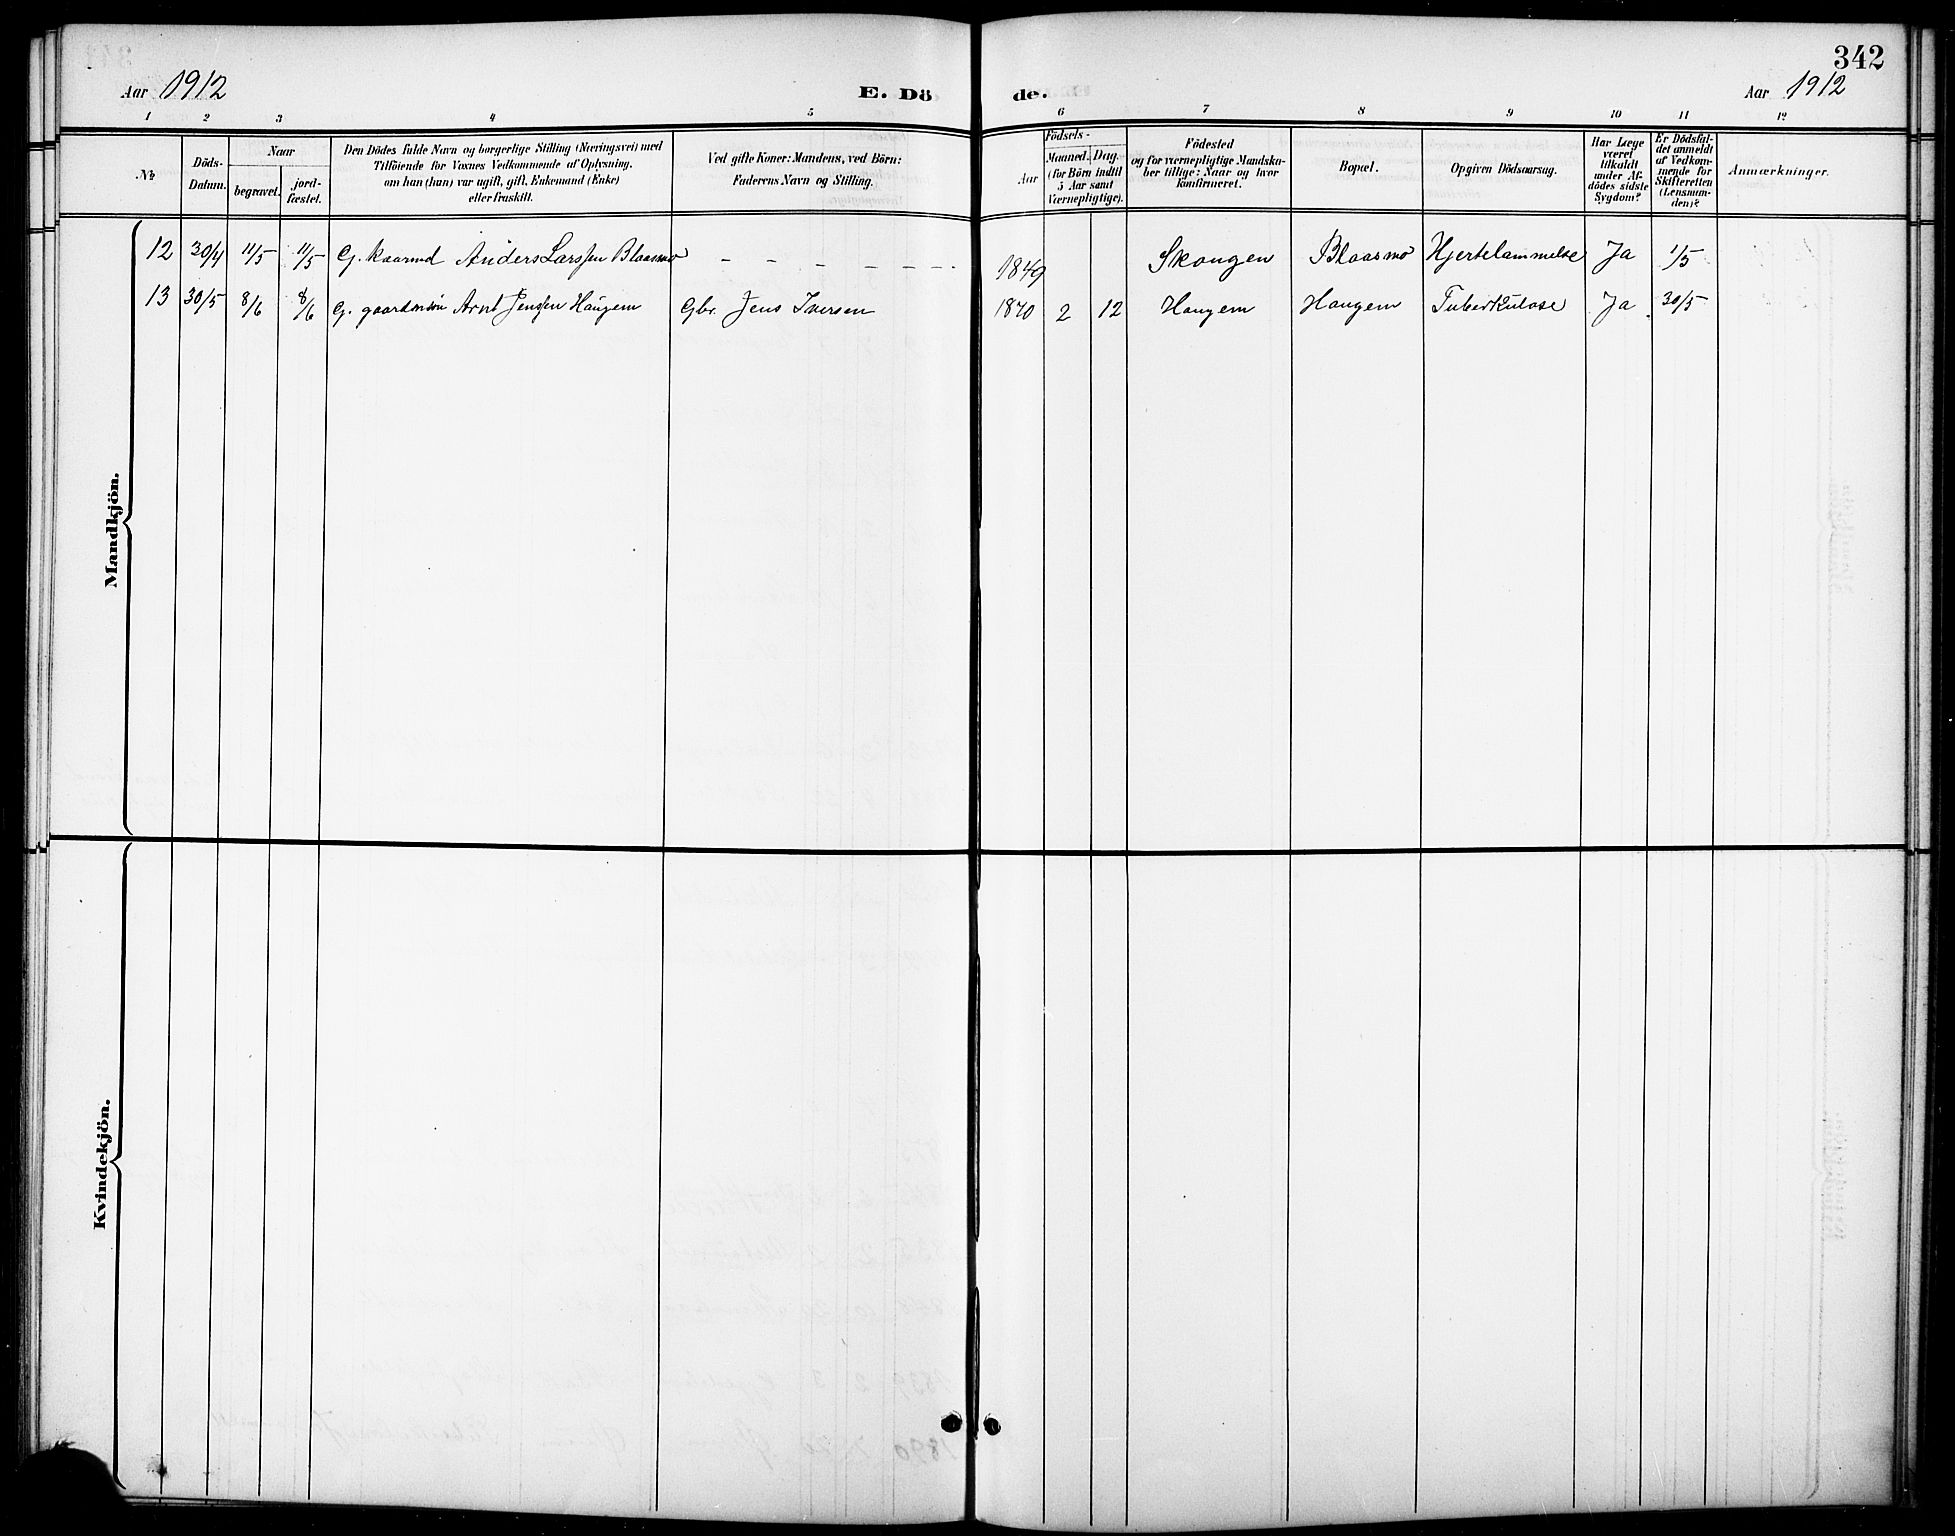 342
Aar 1912 E. Dö de. Aar 1912
1 2 3 4 5 6 7 8 9 10 11 12
№
Döds-
Datum.
Naar
begravet.
jord-
fæstet.
Den Dödes fulde Navn og borgerlige Stilling (Næringsvei) med
Tilföiende for Voxnes Vedkommende af Oplysning,
om han (hun) var ugift, gift, Enkemand (Enke)
eller fraskilt.
Ved gifte Koner: Mandens, ved Börn:
Faderens Navn og Stilling.
Födsels-
Aar
Maaned. Dag.
(for Börn indtil
5 Aar samt
Værnepligtige).
Födested
og for værnepligtige Mandska-
ber tillige: Naar og hvor
konfirmeret.
Bopæl.
Opgiven Dödsaarsag.
Har Læge
været
tilkaldt
under Af-
dödes sidste
Sygdom?
Er Dödsfal-
det anmeldt
af Vedkom-
mende for
Skifteretten
(Lensman-
den)?
Anmærkninger.
Mandkjön.
12 30/4 11/5 11/5 G. kaarmd Anders Larssen Blaasmo – – – – – – – 1849 Skougen Blaasmo Hjertelammelse Ja 1/5
13 30/5 8/6 8/6 G. Arnt Jenssen Haugem Gbr. Jens Iversen 1870 2 12 Haugem Haugem Tuberkulose Ja 30/5
Kvindekjön.